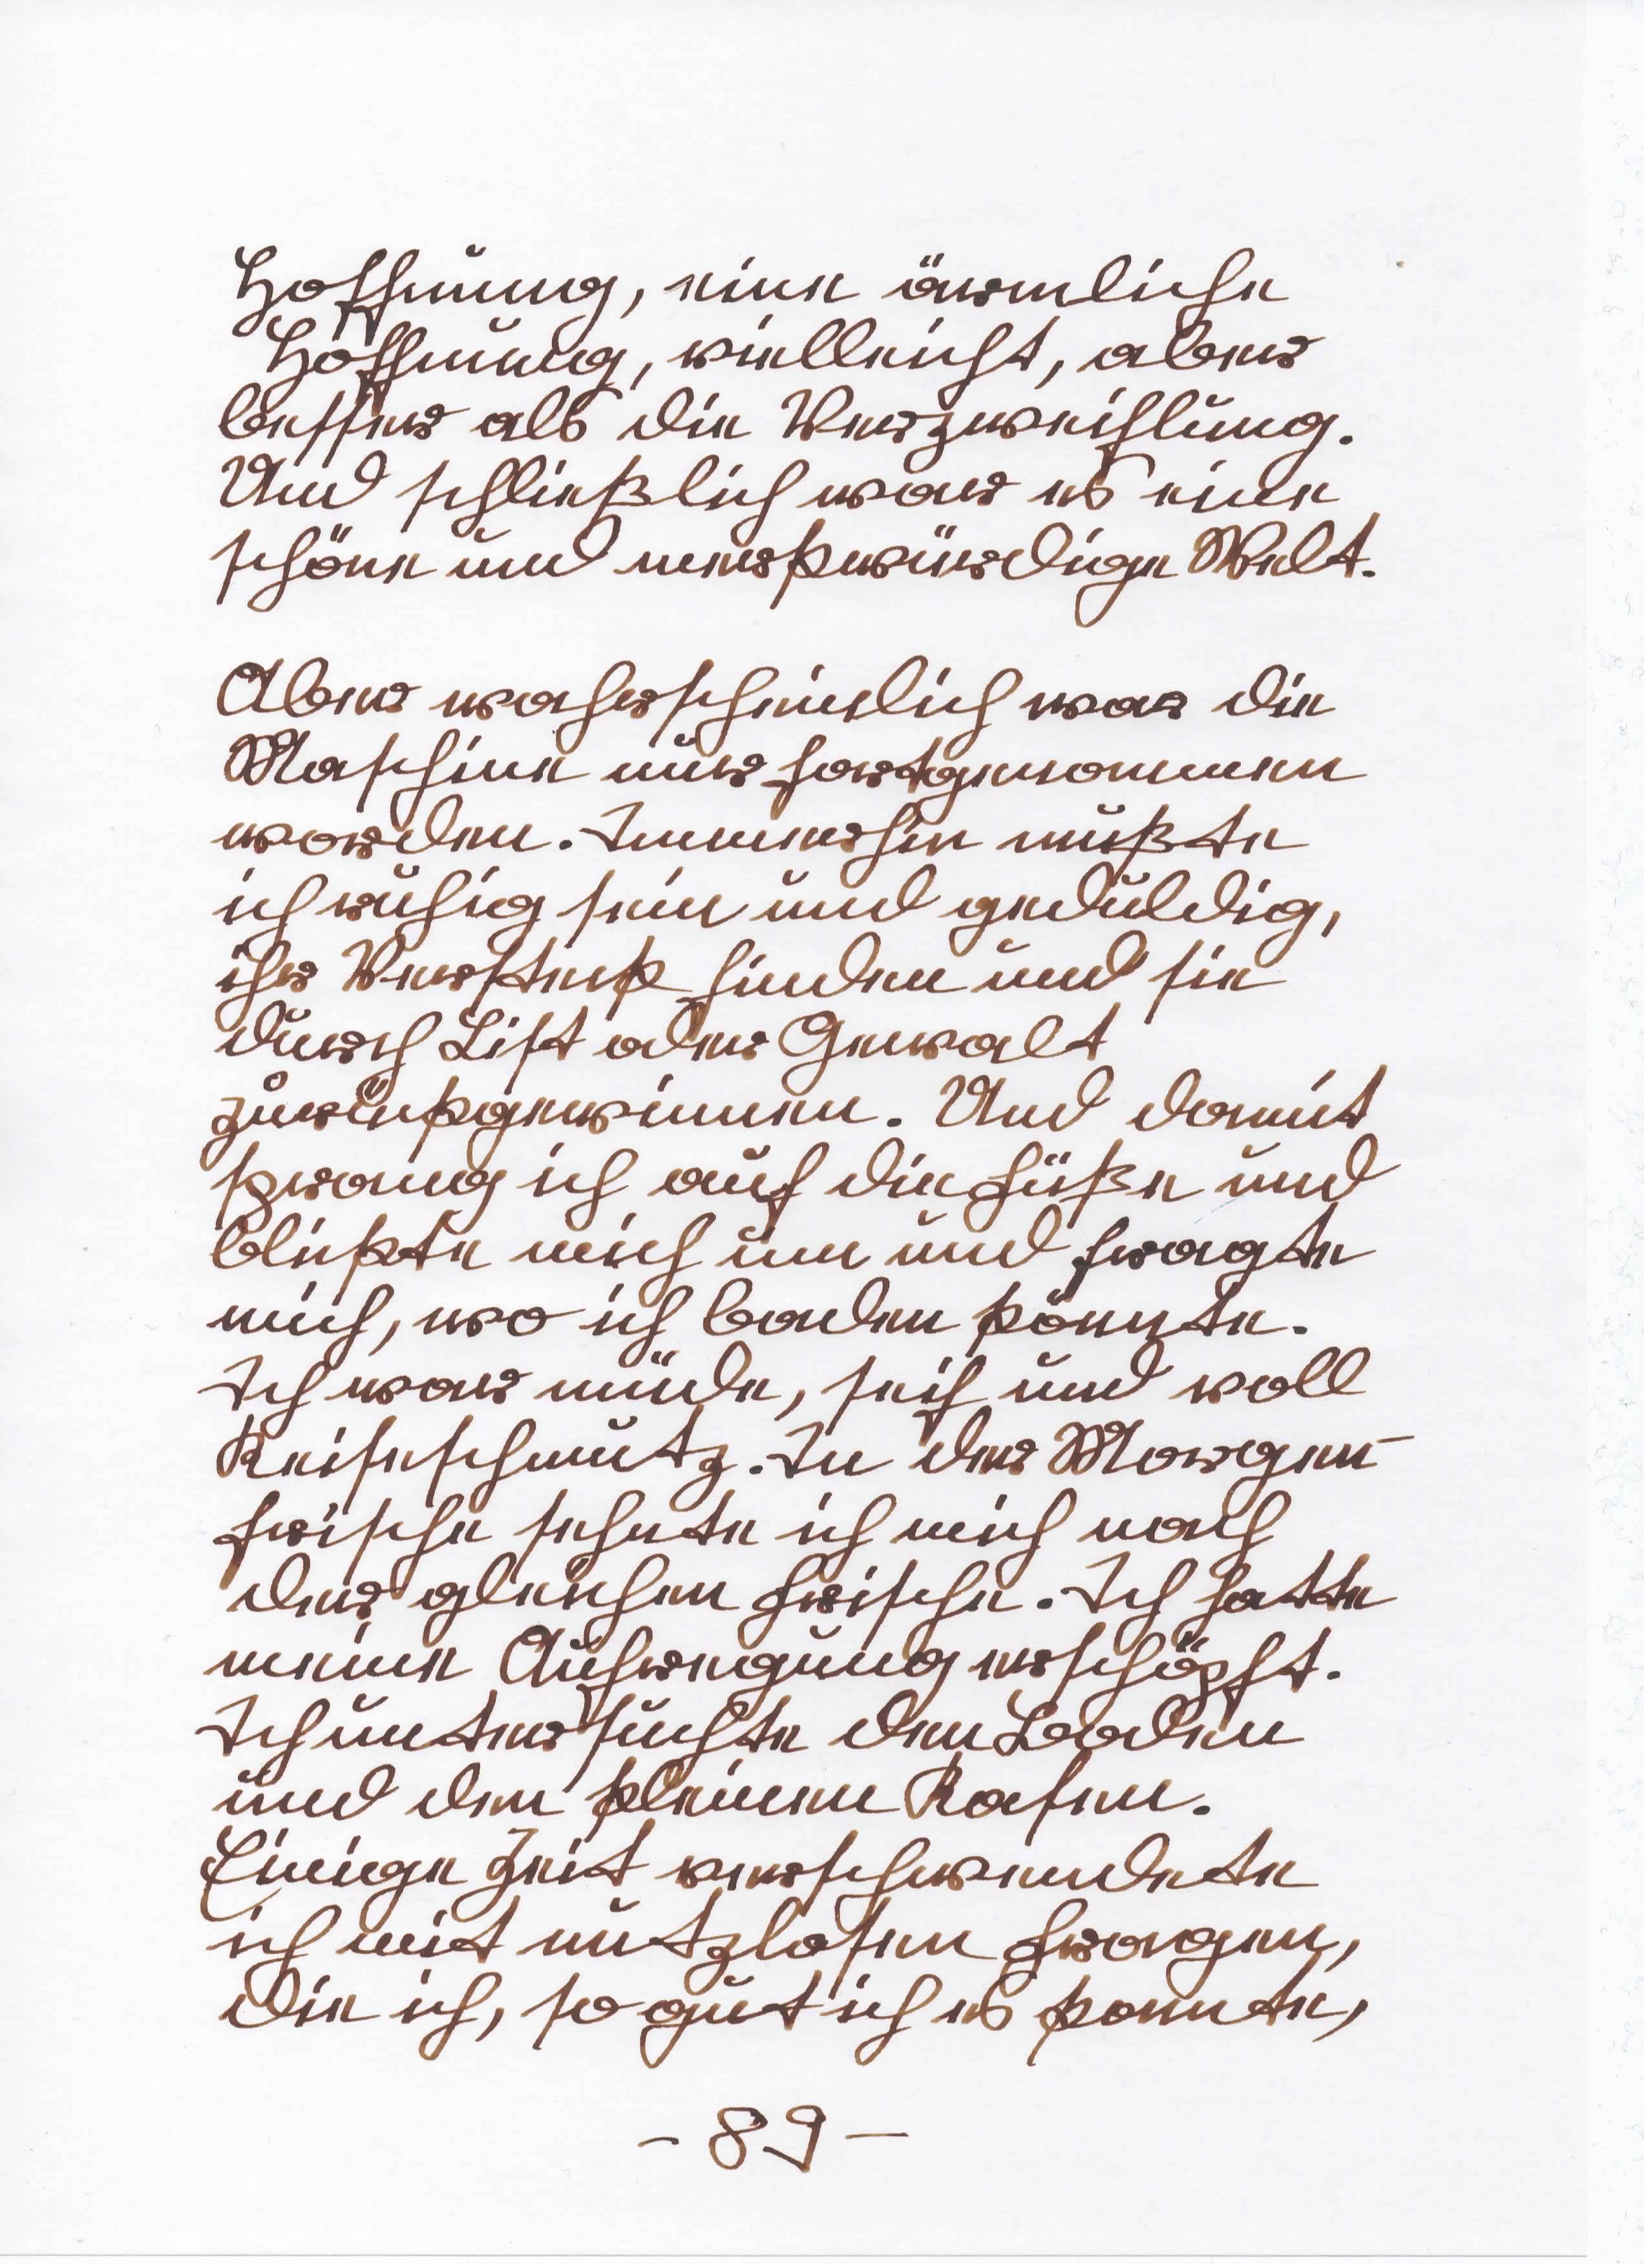 Hoffnung, eine ärmliche
Hoffnung, vielleicht, aber
besser als die Verzweiflung.
Und schließlich war es eine
schöne und merkwürdige Welt.

Aber wahrscheinlich war die
Maschine nur fortgenommen
worden. Immerhin mußte
ich ruhig sein und geduldig,
ihr Versteck finden und sie
durch List oder Gewalt
zurückgewinnen. Und damit
sprang ich auf die Füße und
blickte mich um und fragte
mich, wo ich baden könnte.
Ich war müde, steif und voll
Reiseschmutz. In der Morgen-
frische sehnte ich mich nach
der gleichen Frische. Ich hatte
meine Aufregung erschöpft.
Ich untersuchte den Boden
und den kleinen Rasen.
Einige Zeit verschwendete
ich mit nutzlosen Fragen,
die ich, so gut ich es konnte,
- 89 -